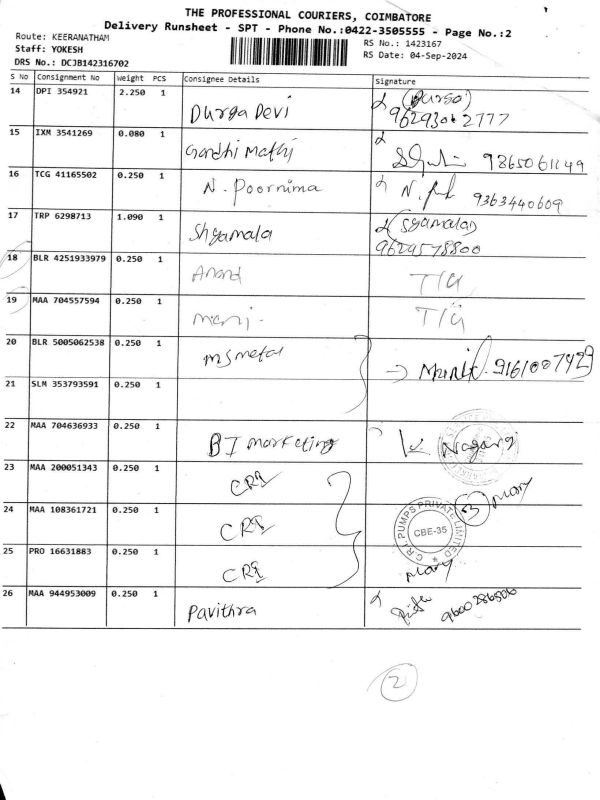 THE PROFESSIONAL COURIERS, COIMBATORE
Delivery Runsheet - SPT - Phone No.:0422-3505555 - Page No.:2
Route: KEERANATHAM
Staff: YOKESH
DRS No.: DCJB142316702
RS No.: 1423167
RS Date: 04-Sep-2024
S No Consignment No Weight PCS Consignee Details Signature
14 DPI 354921 2.250 1 Durga Devi (Durga)
9629306 2777
15 IXM 3541269 0.080 1 Gandhi Mathi 9865061149
16 TCG 41165502 0.250 1 N. Poornima N. 9363440609
17 TRP 6298713 1.090 1 Shyamala (Syamala)
9629578800
18 BLR 4251933979 0.250 1 Anand
19 MAA 704557594 0.250 1 Mani
20 BLR 5005062538 0.250 1 MS metal 9161007429
21 SLM 353793591 0.250 1
22 MAA 704636933 0.250 1 BI marketing Nagaraj
23 MAA 200051343 0.250 1 CRI
3 Mary
24 MAA 108361721 0.250 1 CRI
C.R.I. PUMPS PRIVATE LIMITED
CBE-35
25 PRO 16631883 0.250 1 CRI Mary
26 MAA 944953009 0.250 1 Pavithra 9600286506
2